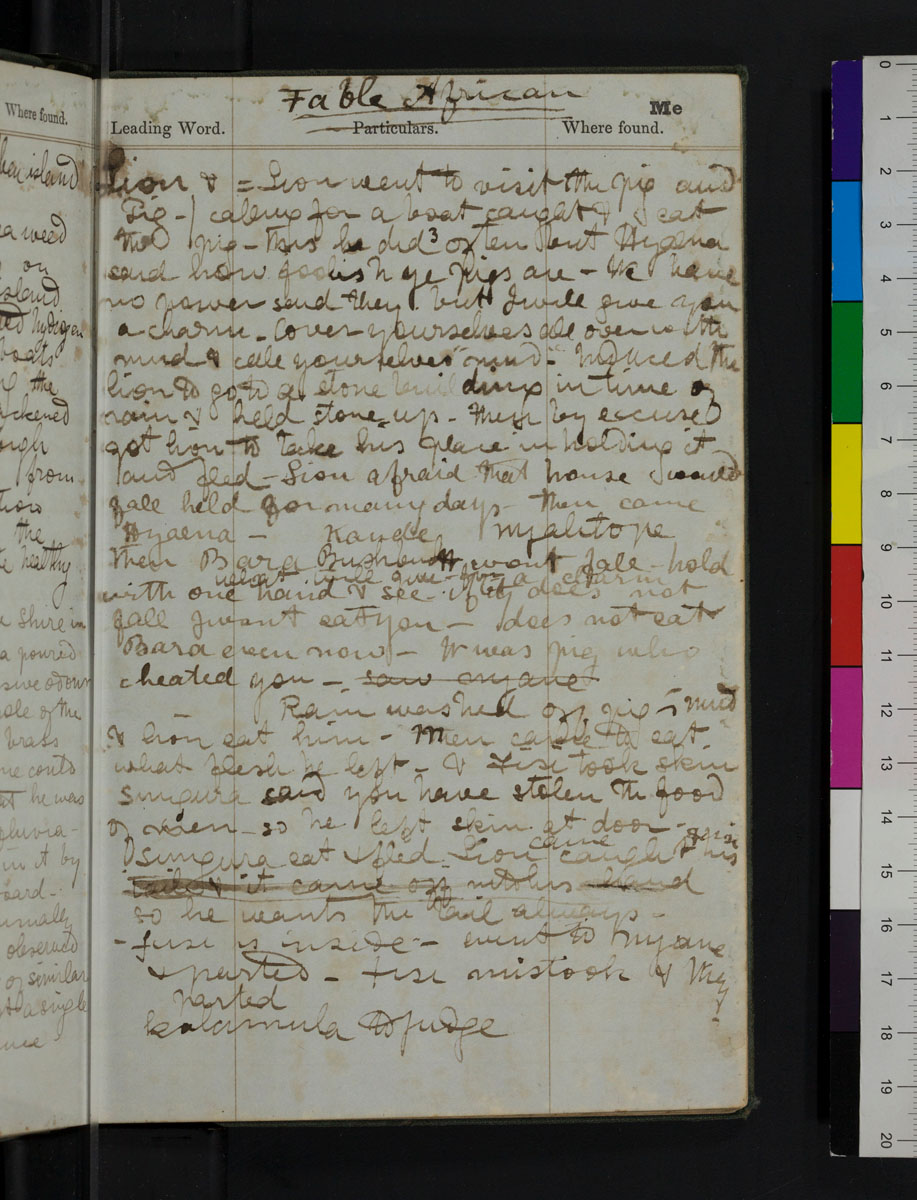 Where found.
island
weed
on
island
boats
the
from
the
healthy
Shire in
poured
ole of the
brass
he was
in it by
usually
observed
or similar
a single
Fable African
Me
Leading Word. Particulars. Where found.
Lion & = Lion went to visit the pig and
Pig - calling for a boat caught & eat
the pig - this he did 3 often but Hyaena
said how foolish ye pigs are - We have
no power said they. but I will give you
a charm - cover yourselves all over with
mud & call yourselves mud - induced the
lion to go to a stone building in time of
rain & held stone up - then by excuse
got lion to take his place in holding it
and fled - Lion afraid that house would
fall held for many days - then came
Hyaena - Kandle Nyalitope
then Bara Bushbuck wont fall - hold
what will give for a charm
with one hand & see - if it does not
fall I wont eat you - does not eat
Bara even now - It was pig who
cheated you - saw nyane
Rain washed off pig's mud
& Lion eat him - Men came to eat
what flesh he left - & Fisi took skin
Sungura said you have stolen the food
of men - so he left skin at door -
came
Sungura eat & fled. Lion caught his
tail & it came off into his hand
so he wants the tail always -
- fuse is inside - went to nyane
& parted - Fisi mistook &
parted
Kalamula to judge
0
1
2
3
4
5
6
7
8
9
10
11
12
13
14
15
16
17
18
19
20